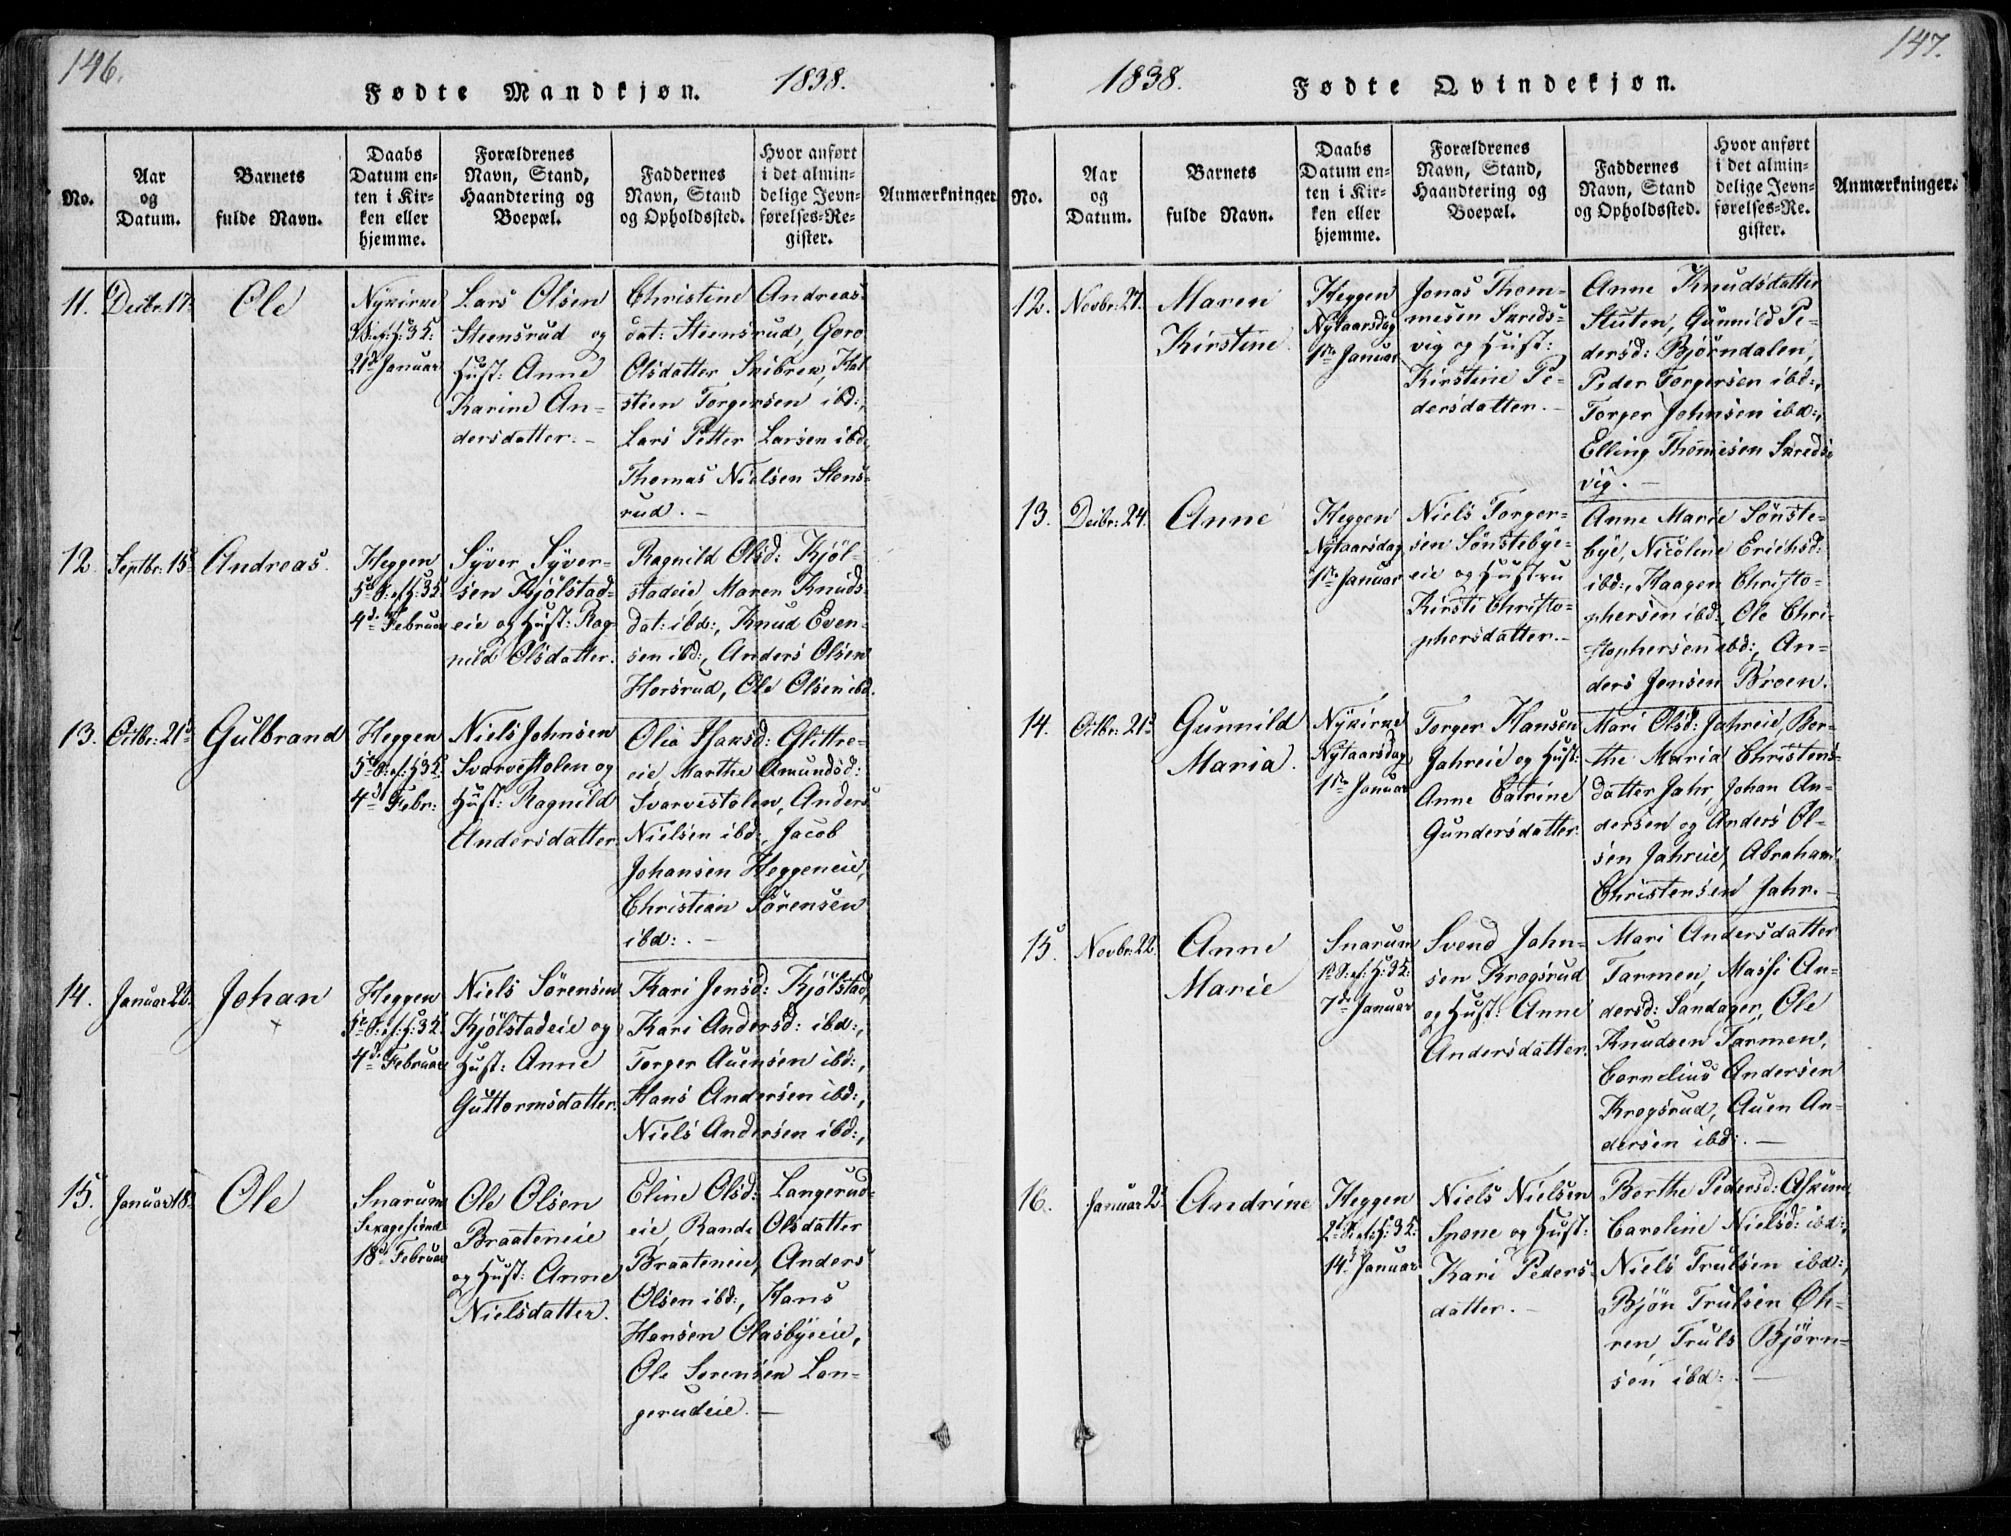 146.
Fødte Mandkjøn.
1838.
No.
Aar
og
Datum.
Barnets
fulde Navn.
Daabs
Datum en-
ten i Kir-
ken eller
hjemme.
Forældrenes
Navn, Stand,
Haandtering og
Boepæl.
Faddernes
Navn, Stand
og Opholdssted.
Hvor anført
i det almin-
delige Jevn-
førelses-Re-
gister.
Anmærkninger.
11.
Decbr: 17.
Ole
Nykirke
21de Januar
Lars Olsen
Steensrud og
Hust: Anne
Karine An-
dersdatter. -
Christine Andreas-
dat: Steensrud, Goro
Olsdatter Snibren, Hal
steen Torgersen ibd:,
Lars Petter Larsen ibd,
Thomas Nielsen Stens-
rud. -
12.
Septbr: 15
Andreas.
Heggen
5te S: ef: H: 3 K:
4de Februar
Syver Syver-
sen Kjølstad-
eie og Hust: Rag-
nild Olsdatter.
Ragnild Olsd: Kjøl-
stadeie, Maren Knuds-
dat: ibd:, Knud Even-
sen ibd:, Anders Olsen
Horsrud, Ole Olsen ibd.
13.
Octbr: 21
Gulbrand
Heggen
5te S: ef: H 3 K:
4de Febr:
Niels Johnsen
Svarvestolen og
Hust: Ragnild
Andersdatter.
Olia Isaksd: Glittre-
eie, Marthe Amundsd:
Svarvestolen, Anders
Nielsen ibd:, Jacob
Johansen Heggeneie,
Christian Sørensen
ibd:. -
14.
Januar 22.
Johan
×
Heggen
5te S: ef: H: 3 K:
4de Februar
Niels Sørensen
Kjølstadeie og
Hust: Anne
Guttormsdatter.
Kari Jensd: Kjølstad,
Kari Andersd: ibd:,
Torger Auensen ibd:,
Hans Andersen ibd:,
Niels Andersen ibd:,
15.
Januar 18.
Ole
Snarum
Sexagesima
18de Februar
Ole Olsen
Braateneie
og Hust: Anne
Nielsdatter.
Eline Olsd: Langerud-
eie, Rande Olsdatter
Braateneie, Anders
Olsen ibd:, Hans
Hansen Olasbyeie,
Ole Sørensen Lan-
gerudeie. -
147.
1838.
Fødte Qvindekjøn.
No.
Aar
og
Datum.
Barnets
fulde Navn.
Daabs
Datum en-
ten i Kir-
ken eller
hjemme.
Forældrenes
Navn, Stand,
Haandtering og
Boepæl.
Faddernes
Navn, Stand
og Opholdssted.
Hvor anført
i det almin-
delige Jevn-
førelses-Re-
gister.
Anmærkninger.
12.
Novbr: 27.
Maren
Kirstine
Heggen
Nytaarsdag
1ste Januar
Jonas Thom-
mesen Skreds-
vig og Hust:
Kirstine Pe-
dersdatter. -
Anne Knudsdatter
Stuten, Gunnild Pe-
dersd: Bjørndalen,
Peder Torgersen ibd:,
Torger Johnsen ibd:,
Elling Thomesen Skreds-
vig. -
13.
Decbr: 24.
Anne
Heggen
Nytaarsdag
1ste Januar
Niels Torger-
sen Sønstebye-
eie og Hustru
Kirsti Christo-
phersdatter. -
Anne Marie Sønste-
bye, Nicoline Erichsd:
ibd:, Haagen Christo-
phersen ibd:, Ole Chri-
stophersen ibd:, An-
ders Jensen Broen.
14.
Octbr: 21
Gunnild
Maria.
Nykirke
Nytaarsdag
1ste Januar
Torger Hansen
Jahreie og Hust:
Anne Catrine
Gundersdatter.
Mari Olsd: Jahreie, Ber-
the Maria Christens-
datter Jahr, Johan An-
dersen og Anders Ol-
sen Jahreie, Abraham
Christensen Jahr. -
15.
Novbr: 22
Anne
Marie
Snarum
1ste S: ef: H: 3 K:
7de Januar
Svend John-
sen Krogsrud
og Hust: Anne
Andersdatter.
Mari Andersdatter
Tarmen, Massi An-
dersd: Sandager, Ole
Knudsen Tarmen,
Cornelius Andersen
Krogsrud, Auen An-
dersen ibd:. -
16.
Januar 2
Andrine
Heggen
14de Januar
Niels Nielsen
Spone og Hust:
Kari Peders-
datter. -
Berthe Pedersd: Askim
Caroline Nielsd: ibd:,
Niels Trulsen ibd:,
Bjøn Trulsen Øh-
ren, Truls Bjørn-
sen ibd: -